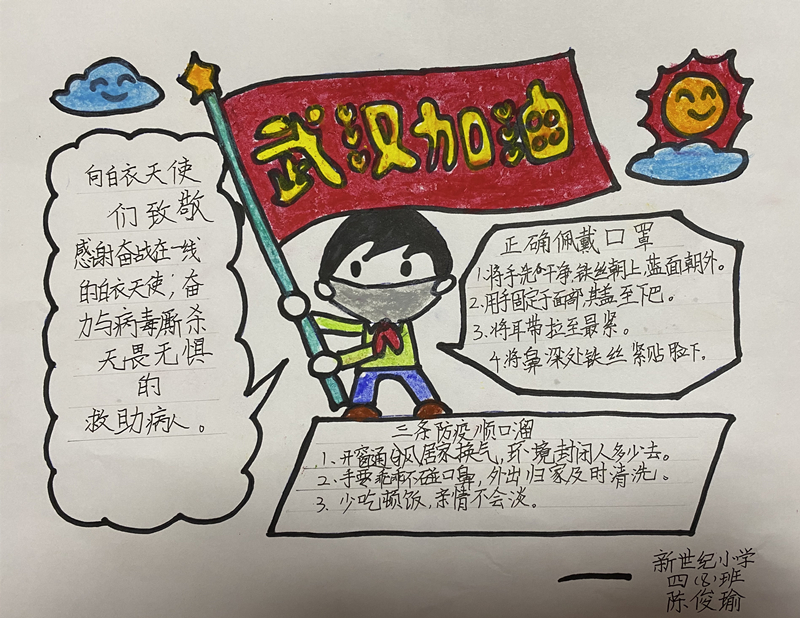 武汉加油
向白衣天使
们致敬
感谢奋战在一线
的白衣天使；奋
力与病毒厮杀
无畏无惧
的
救助病人。
正确佩戴口罩
1.将手洗干净,铁丝朝上,蓝面朝外。
2.用手固定于面部,盖至下巴。
3.将耳带拉至最紧。
4.将鼻深处铁丝紧贴脸下。
三条防疫顺口溜
1、开窗通风居家换气，环境封闭人多少去。
2、手要乖乖不碰口鼻，外出归家及时清洗。
3、少吃顿饭，亲情不会淡。
新世纪小学
四（8）班
陈俊瑜